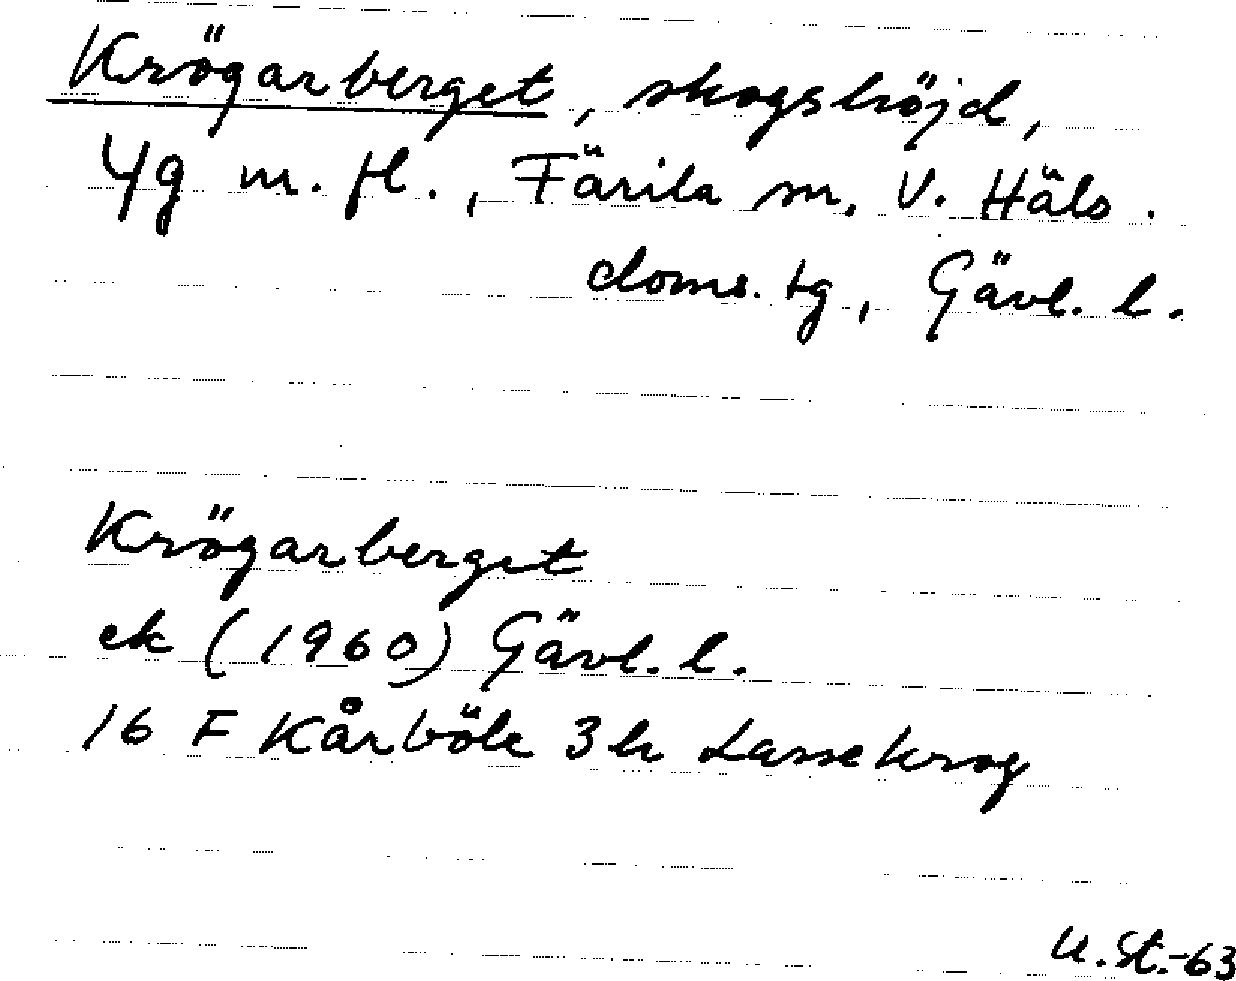 Krögarberget, skogshöjd,
Yg m. fl., Färila sn, V. Häls.
doms. tg, Gävl. l.
Krögarberget
ek (1960) Gävl. l.
16 F Kårböle 3 h Lassekrog
U. St.-63